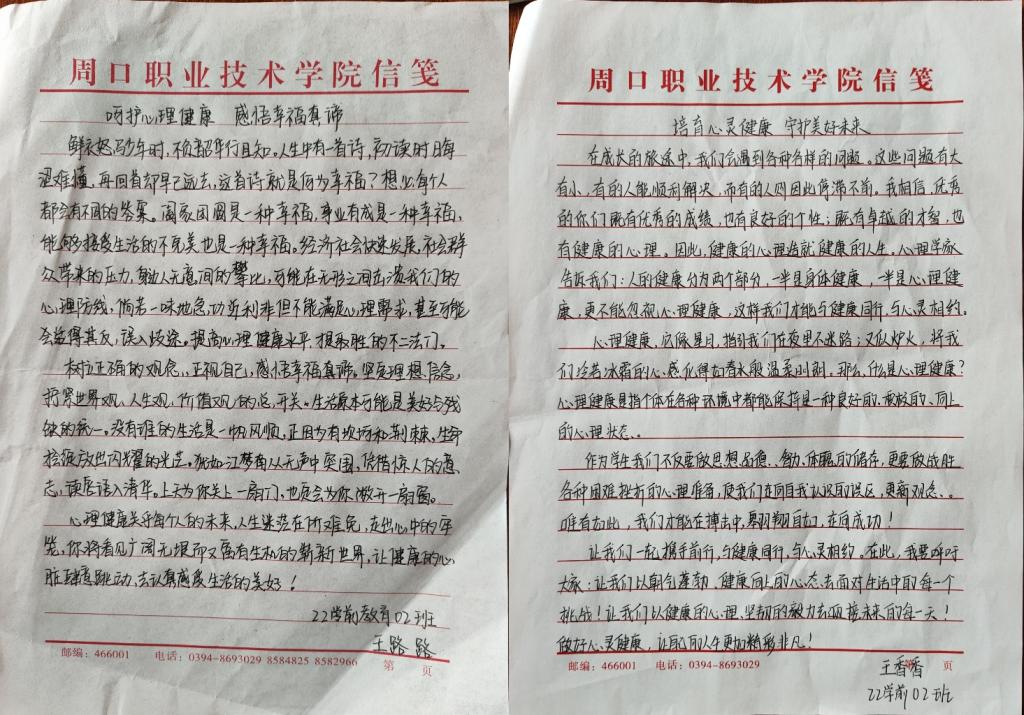 周口职业技术学院信笺
呵护心理健康 感悟幸福真谛
鲜衣怒马少年时,不负韶华行且知。人生中有一首诗,初读时晦
涩难懂,再回首却早已远去,这首诗就是何为幸福?想必每个人
都会有不同的答案。阖家团圆是一种幸福,事业有成是一种幸福,
能够接受生活的不完美也是一种幸福。经济社会快速发展,社会群
众带来的压力,身边人无意间的攀比,可能在无形之间击溃我们的
心理防线,倘若一味地急功近利非但不能满足心理需求,甚至可能
会适得其反,误入歧途。提高心理健康水平,摄取胜的不二法门。
树立正确的观念,正视自己,感悟幸福真谛。坚定理想信念,
拧紧世界观、人生观、价值观的总开关。生活原本可能是美好与残
缺的统一。没有谁的生活是一帆风顺,正因为有坎坷和荆棘,生命
才能绽放出闪耀的光芒。犹如江梦南从无声中突围,凭借惊人的意
志,读唇语入清华。上天为你关上一扇门,也会为你敞开一扇窗。
心理健康关乎每个人的未来,人生迷茫在所难免,走出心中的牢
笼,你将看见广阔无垠而又富有生机的崭新世界,让健康的心
脏肆意跳动,去认真感受生活的美好!
22学前教育02班
王路路
邮编:466001 电话:0394-8693029 8584825 8582966 第 页
周口职业技术学院信笺
培育心灵健康 守护美好未来
在成长的旅途中,我们会遇到各种各样的问题。这些问题有大
有小,有的人能顺利解决,而有的人则因此停滞不前。我相信,优秀
的你们既有优秀的成绩,也有良好的个性;既有卓越的才智,也
有健康的心理。因此,健康的心理造就健康的人生。心理学家
告诉我们:人的健康分为两个部分,一半是身体健康,一半是心理健
康,更不能忽视心理健康,这样我们才能与健康同行,与心灵相约。
心理健康,它像是日,指引我们在夜里不迷路;又似炉火,将我
们冷若冰霜的心感化得如春水般温柔。那么,什么是心理健康?
心理健康是指个体在各种环境中都能保持一种良好的、向上
的心理状态。
作为学生我们不仅要做思想品德、智力、体魄的储存,更要做战胜
各种困难挫折的心理准备,使我们走向自我认识的误区,更新观念。
唯有如此,我们才能在搏击中翱翔自如,走向成功!
让我们一起携手前行,与健康同行,与心灵相约。在此,我要呼吁
大家:让我们以朝气蓬勃、健康向上的心态去面对生活中的每一个
挑战!让我们以健康的心理、坚韧的毅力去迎接未来的每一天!
做好心灵健康,让我们的人生更加精彩非凡!
邮编:466001 电话:0394-8693029 第 页
王香香
22学前02班